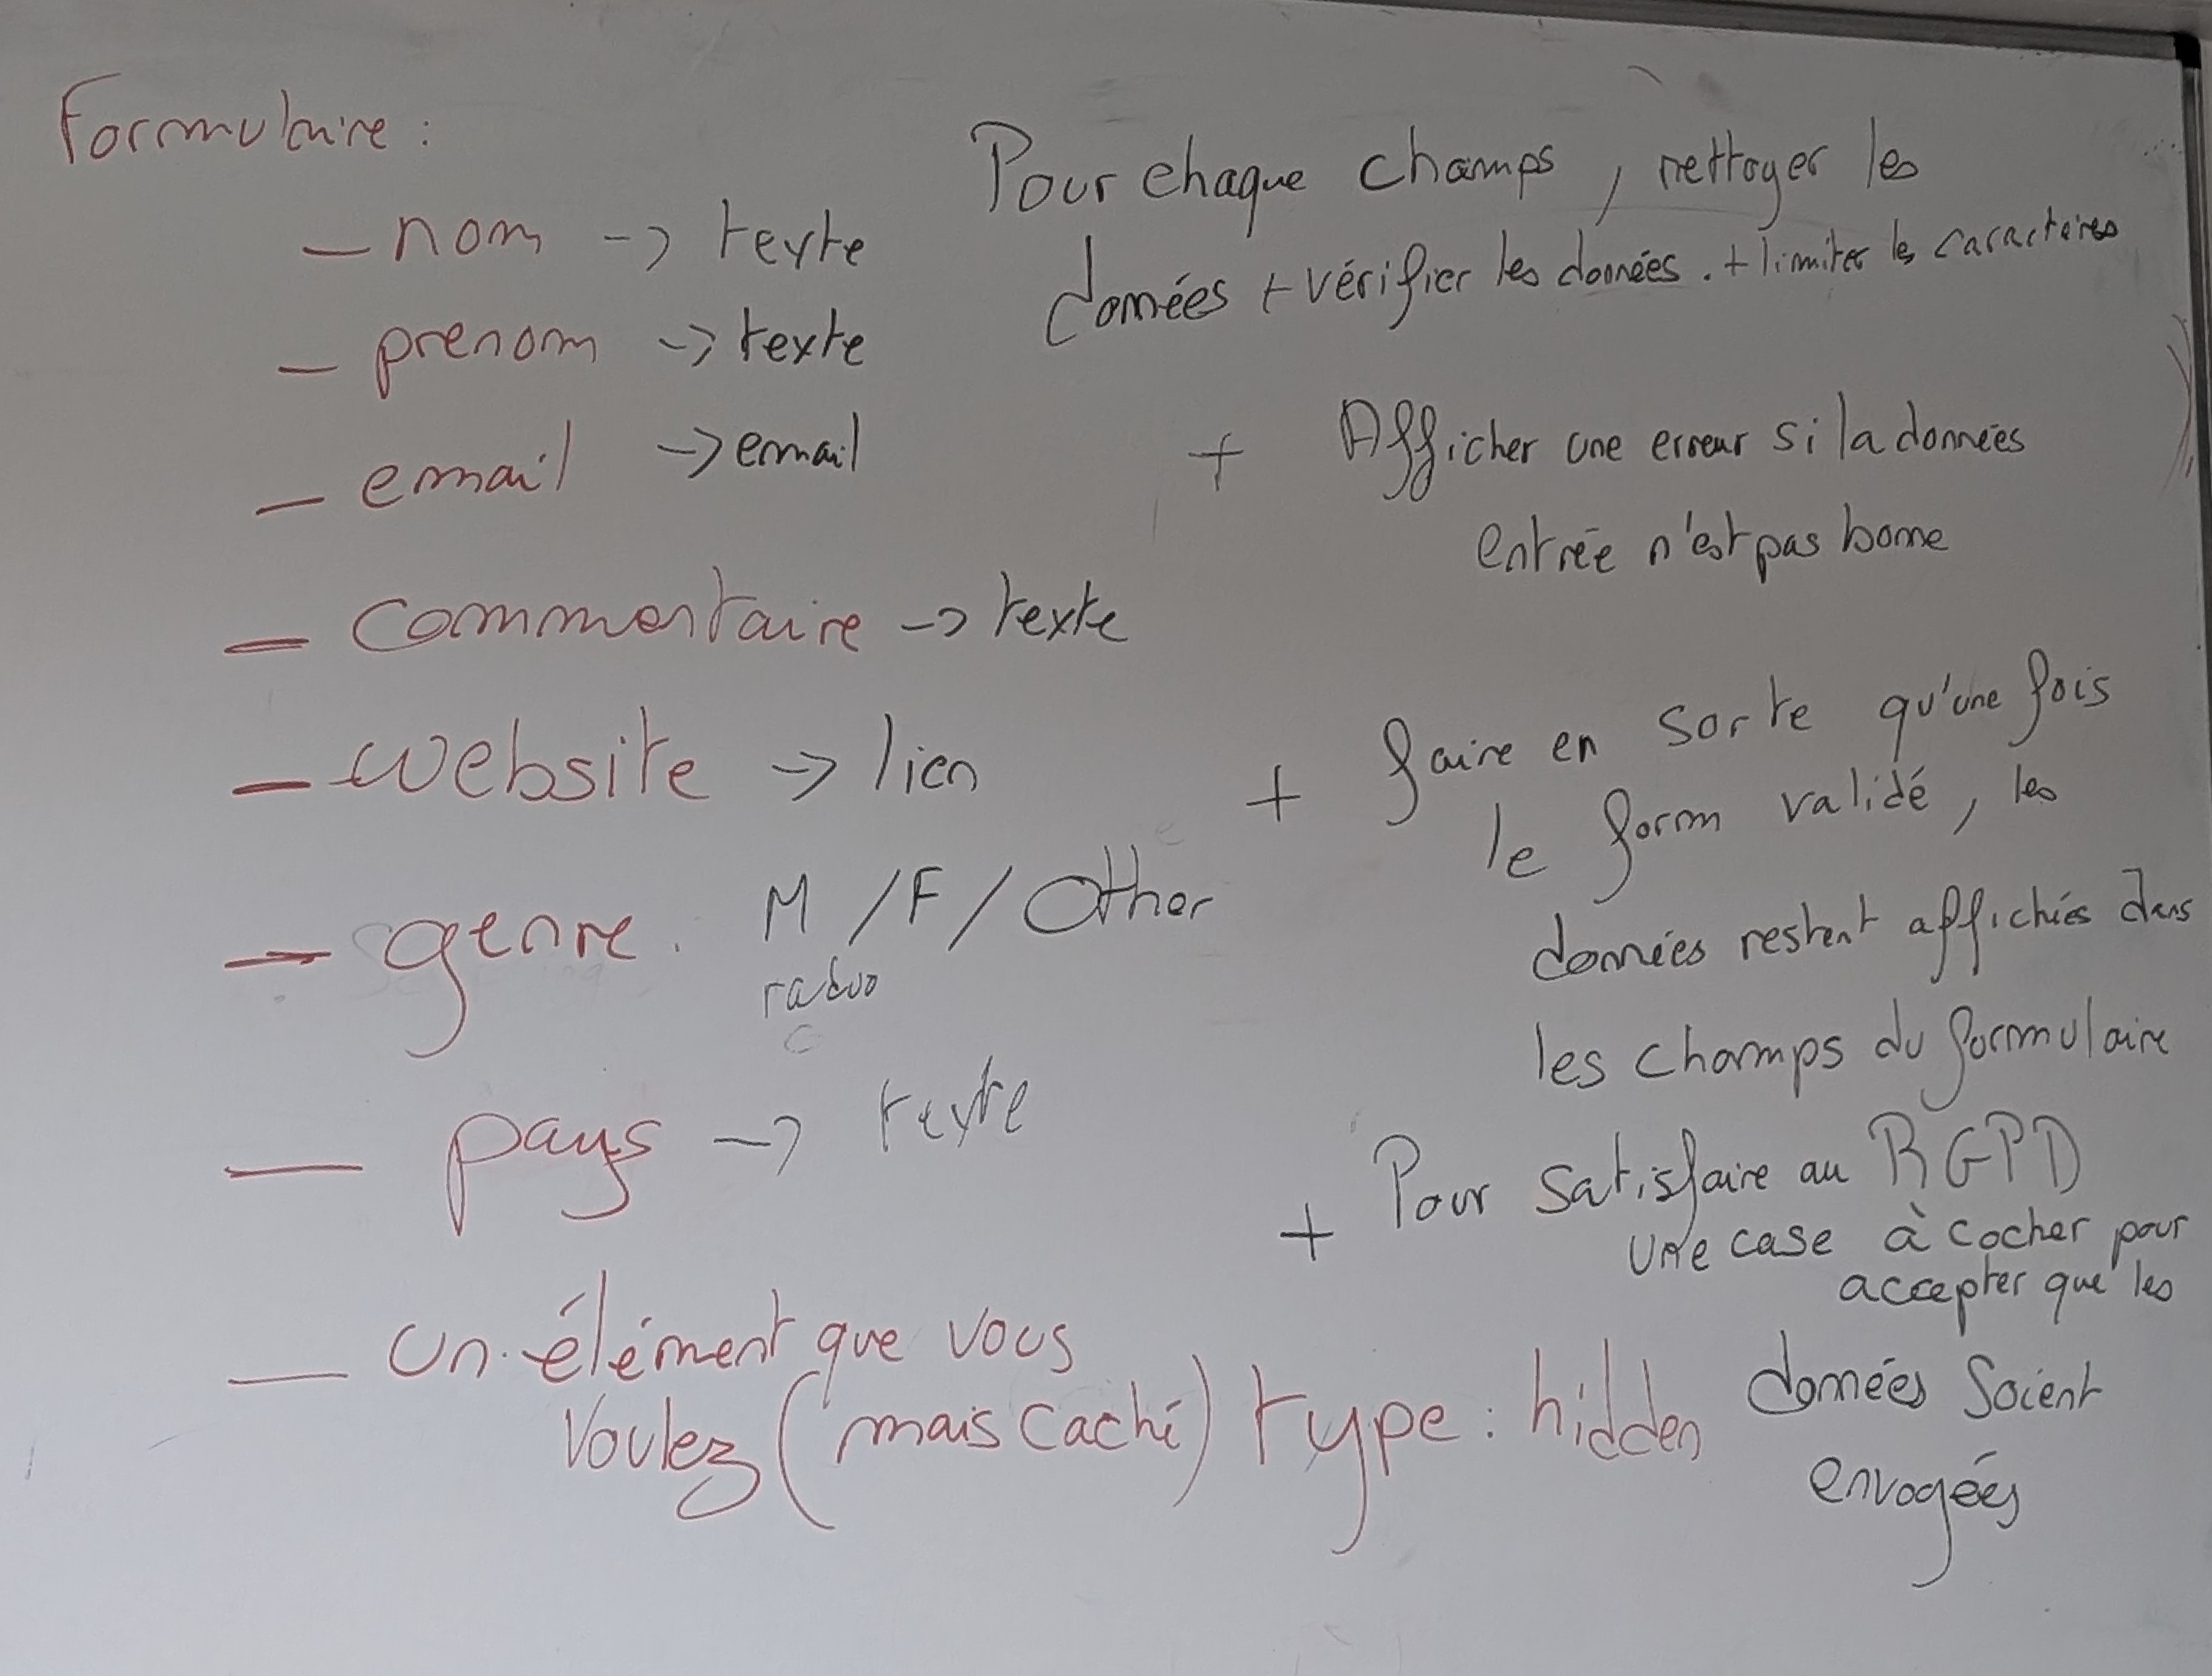 Formulaire :
— nom -> texte
— prenom -> texte
— email -> email
— commentaire -> texte
— website -> lien
— genre : M / F / Other
radio
— pays -> texte
— Un élément que vous
voulez (mais caché) type : hidden
Pour chaque champs, nettoyer les
données + vérifier les données. + limiter les caractères
+ Afficher une erreur si la données
entrée n'est pas bonne
+ faire en sorte qu'une fois
le form validé, les
données restent affichées dans
les champs du formulaire
+ Pour satisfaire au RGPD
une case à cocher pour
accepter que les
données soient
envoyées